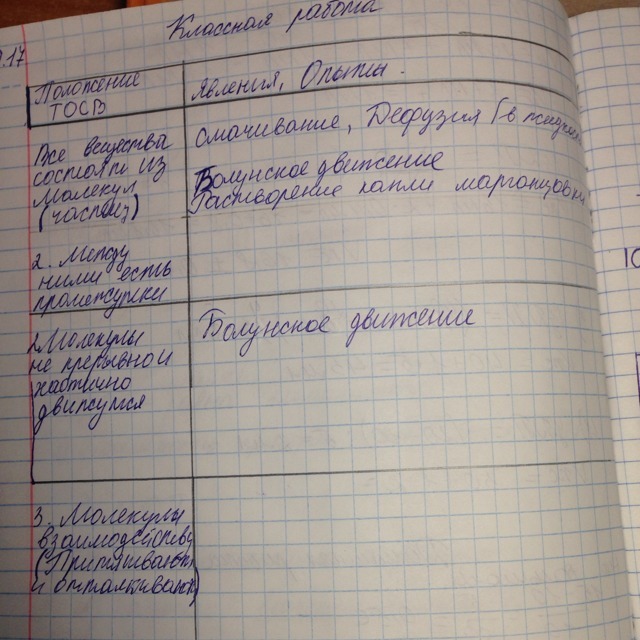 Классная работа
.17
Положение
ТОСВ
Явления, Опыты.
Все вещества
состоят из
молекул
(частиц)
смачивание, Дефузия (в жидкос
Болунское движение
Растворение капли марганцовки
2. Между
ними есть
промежутки
2 Молекулы
не прерывно и
хаотично
движутся
Болунское движение
3. Молекулы
взаимодейству
(Притягивают
и отталкивают)
10